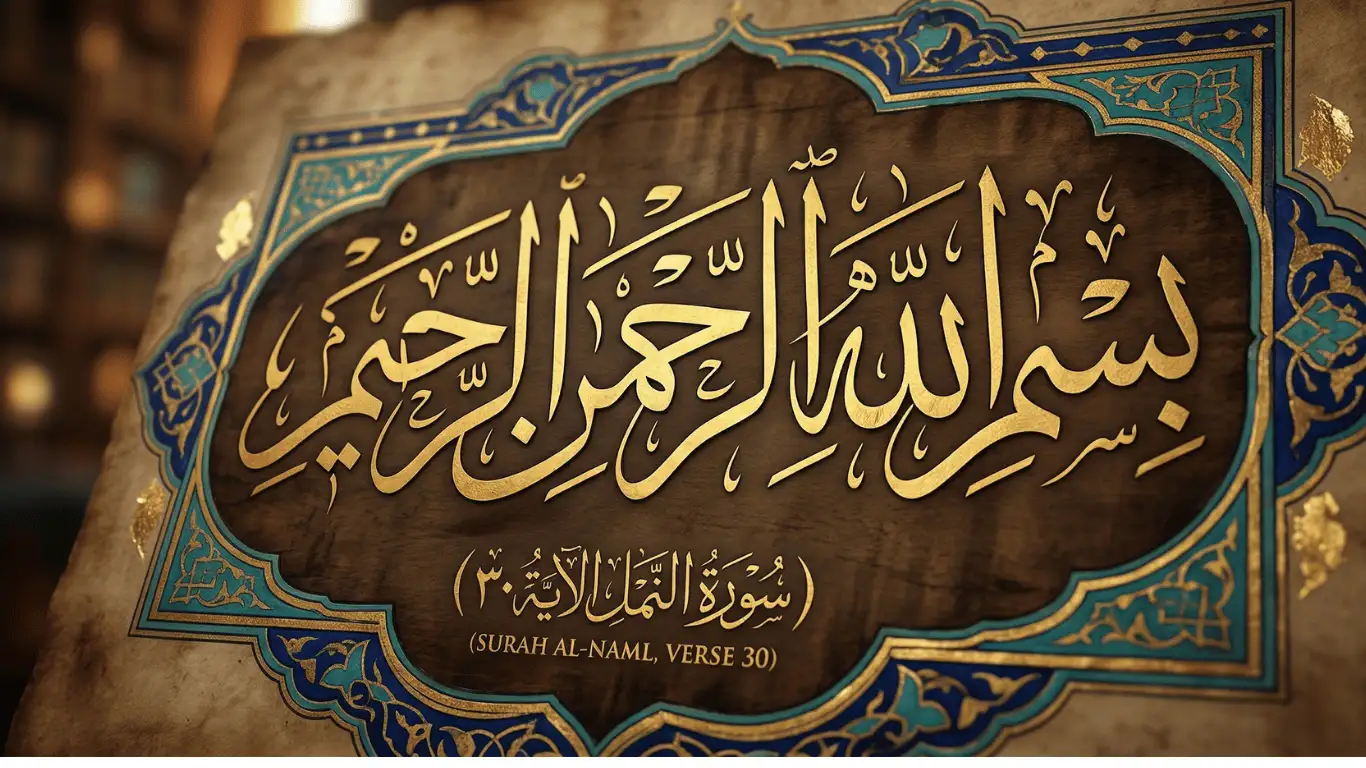 بِسْمِ اللَّهِ الرَّحْمَنِ الرَّحِيمِ
(سُورَةُ النَّمْلِ الآيَةُ ٣٠)
(SURAH AL-NAML, VERSE 30)